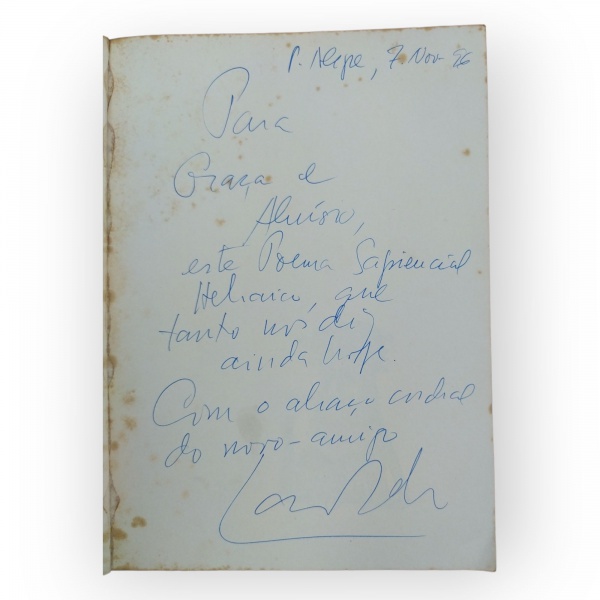 P. Alegre, 7 Nov 96
Para
Graça e
Aluísio,
este Poema Sapiencial
Hebraico, que
tanto nos diz
ainda hoje.
Com o abraço cordial
do novo-amigo